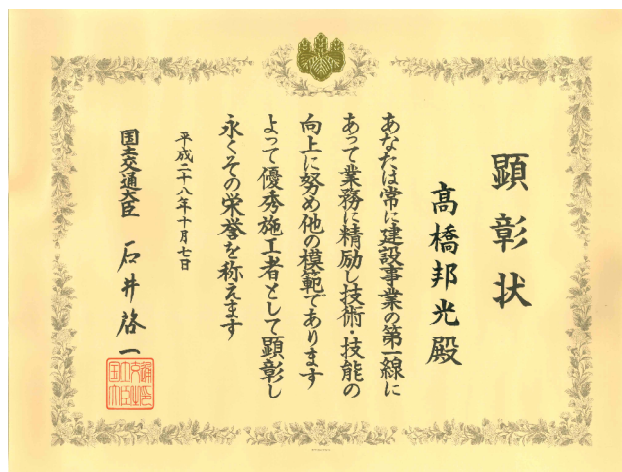 顕彰状
髙橋邦光殿
あなたは常に建設事業の第一線に
あって業務に精励し技術・技能の
向上に努め他の模範であります
よって優秀施工者として顕彰し
永くその栄誉を称えます
平成二十八年十月七日
国土交通大臣 石井啓一